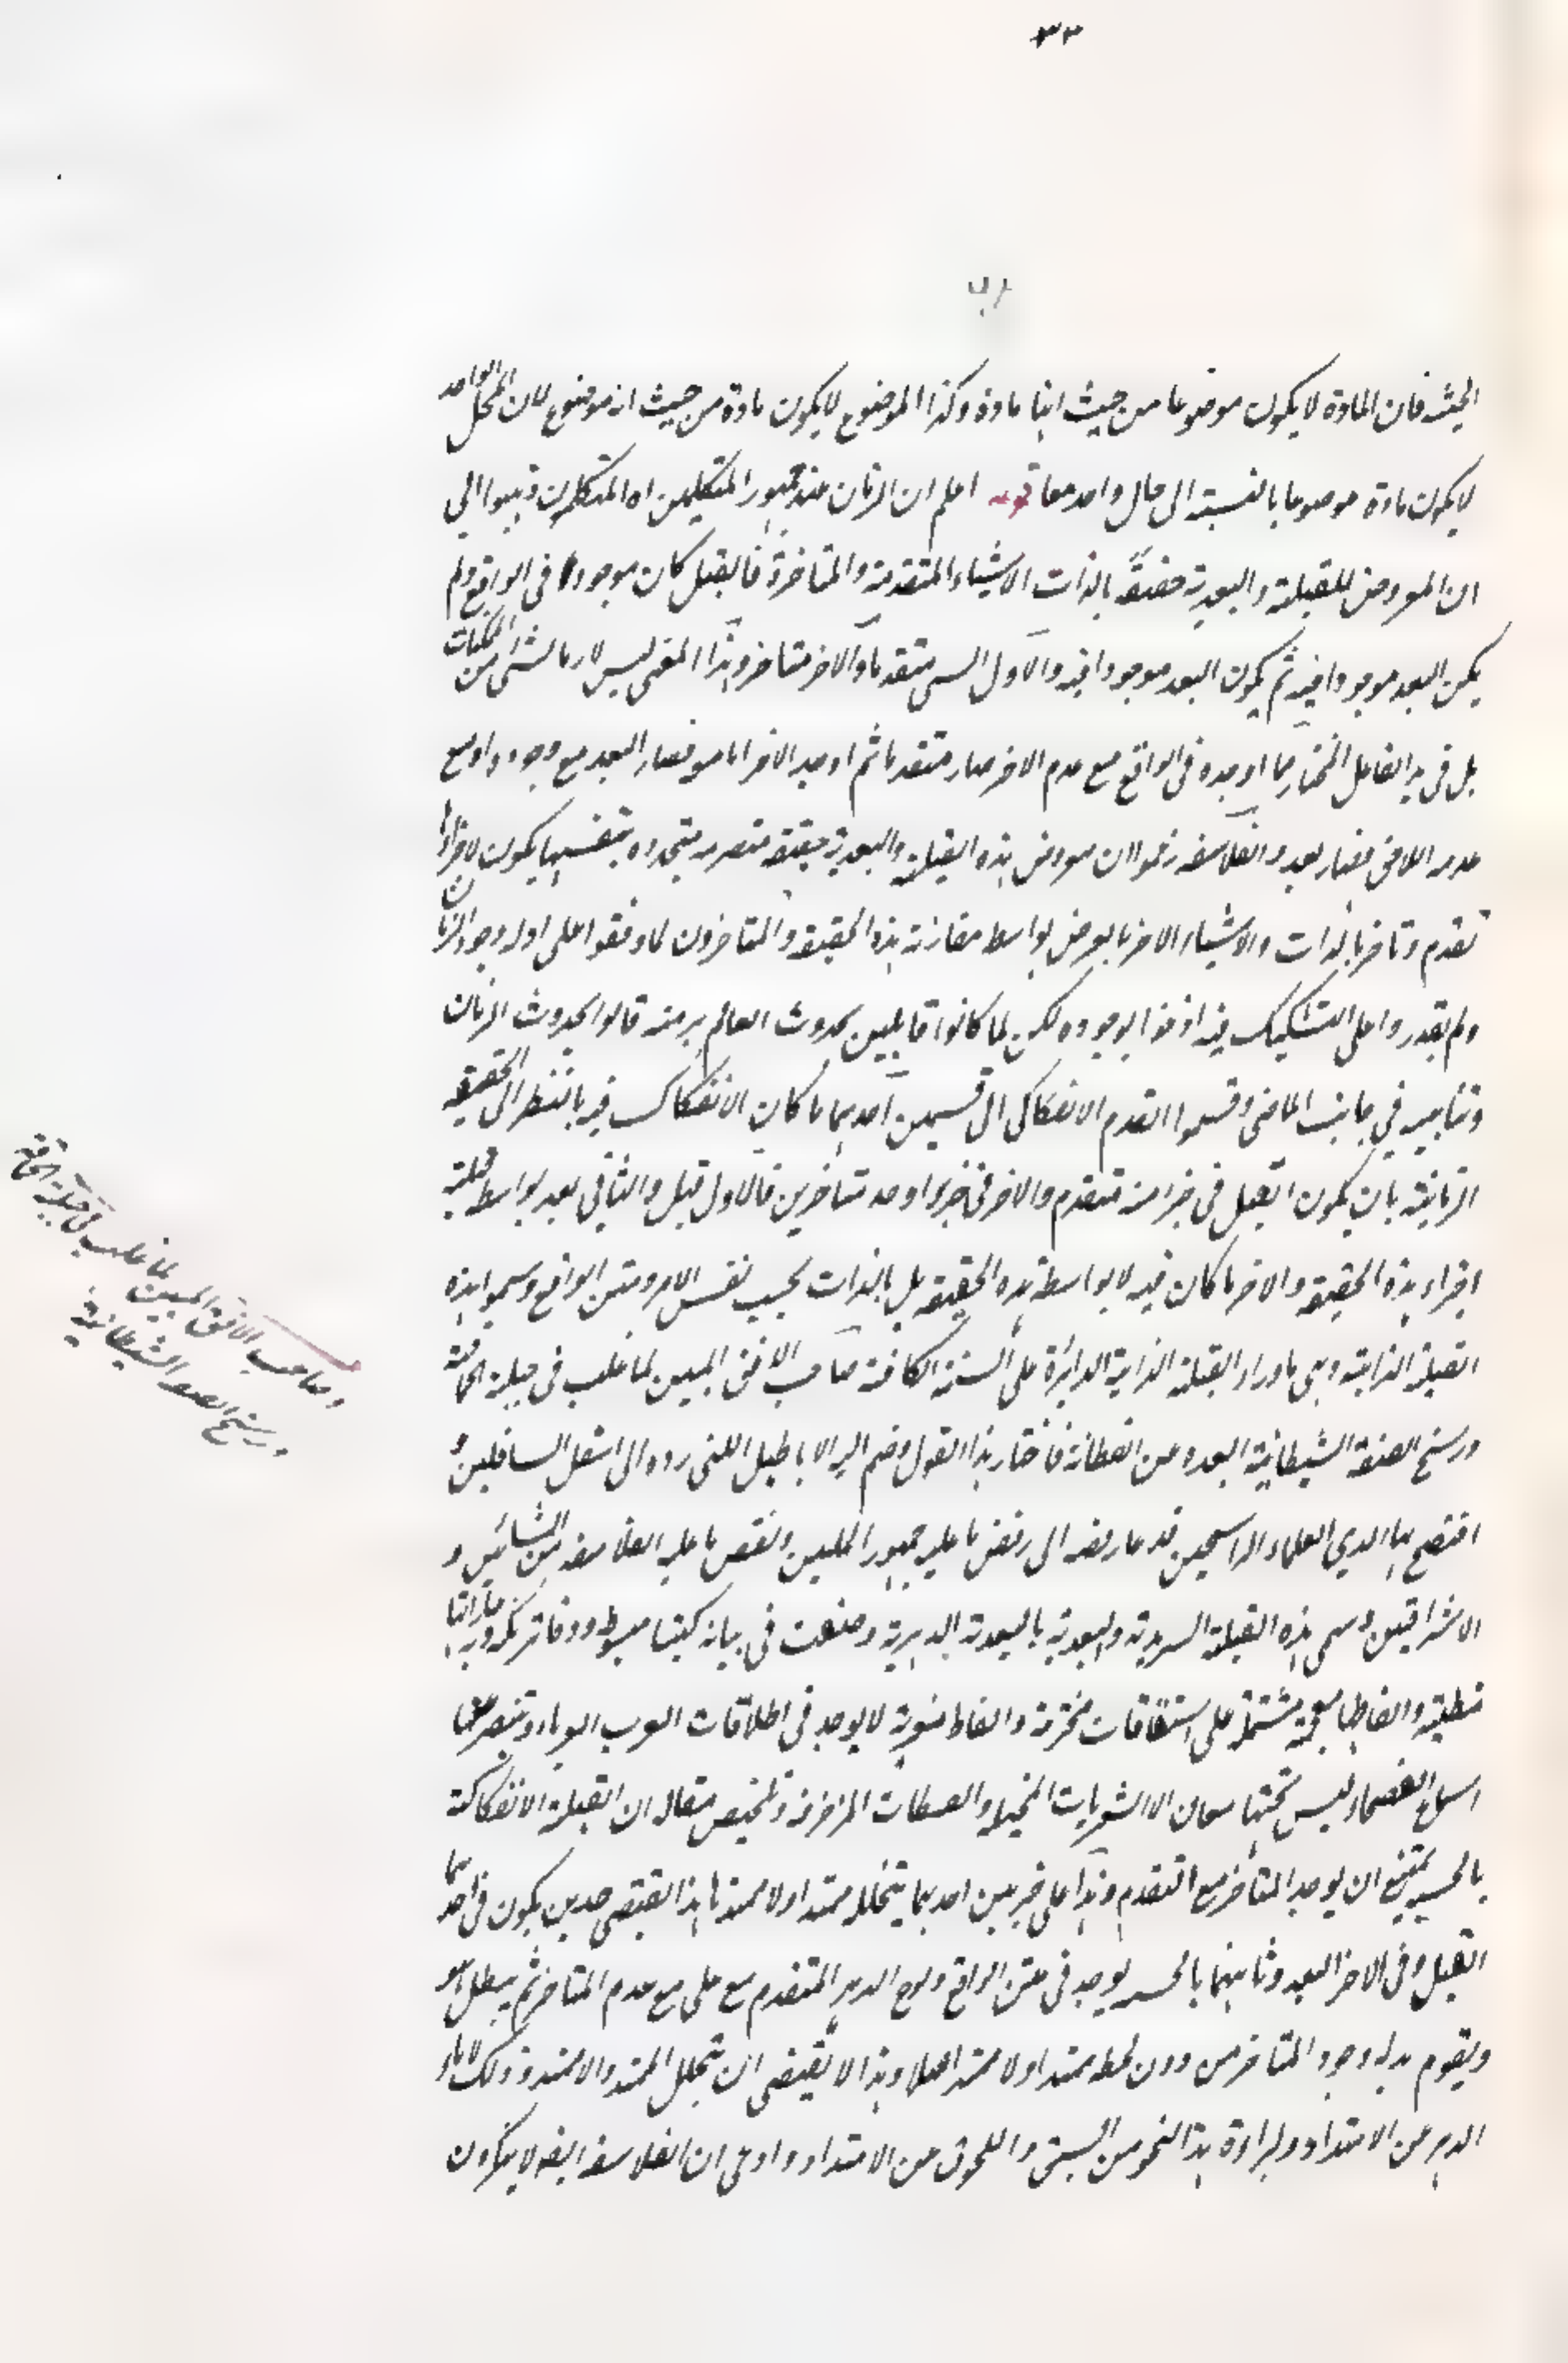 ٣٣
الحيثية فان المادة لا يكون موضوعا من حيث انها مادة وكذا الموضوع لا يكون مادة من حيث انه موضوع لان المحل الواحد
لا يكون مادة موضوعا بالنسبة الى حال واحد معا قوله اعلم ان الزمان عند جمهور المتكلمين اه المتكلمون ذهبوا الى
ان المعروض للقبلية والبعدية حقيقة بالذات الاشياء المتقدمة والمتاخرة فالقبل كان موجودا فى الواقع ولم
يكن البعد موجودا فيه ثم يكون البعد موجودا فيه والاول السى متقدما والاخر متاخر وهذا المعنى ليس لازما لشى من الممكنات
بل فى يد الفاعل المختار لما اوجده فى الواقع مع عدم الاخر صار متقدما ثم اوجد الاخر اما مع فصار البعد مع وجوده او مع
عدمه اللاحق فصار بعد والفلاسفة زعموا ان معروض هذه القبلية والبعدية حقيقة متصرمة متجددة بنفسها يكون لاجزائها
تقدم وتاخر بالذات والاشياء الاخر بالعرض بواسطة مقارنة هذه الحقيقة والمتاخرون لما وقفوا على ادلة وجود الزمان
ولم يقدروا على التشكيك فيه اذعنوا بوجوده لكن لما كانوا قايلين بحدوث العالم برمته قالوا بحدوث الزمان
وتناهيه في جانب الماضى وقسموا التقدم الانفكاكى الى قسمين احدهما ما كان الانفكاك فيه بالنظر الى الحقيقة
الزمانية بان يكون القبل فى جزء منه متقدم والاخر فى جزء او حد متاخرين فالاول قبل والثانى بعد بواسطة قبلية
اجزاء هذه الحقيقة والاخر ما كان فيه لا بواسطة هذه الحقيقة بل بالذات بحسب نفس الامر ومتن الواقع وسموا هذه
القبلية الذاتية وهى ماوراء القبلية الذاتية الدايرة على السنة الكافة صاحب الافق المبين لما غلب فى جبلة الحماقة
ورسخ الصنعة الشيطانية البعده عن الفطانة فاختار هذا القول وضم اليه الاباطيل اللتى رده الى اسفل السافلين و
افتضح بها لدي العلماء الراسخين قد عارضه الى رفض ما عليه جمهور المليين ونقض ما عليه الفلاسفة من المشائين و
الاشراقيين وسمى هذه القبلية السرمدية والبعدية بالبعدية الدهرية وصنعت فى بيانه كتبا مبسوطة ودفاتر
والفاظها مشتملة على اشتقاقات مخترعة والفاظ لا يوجد فى اطلاقات العرب العرباء
الفصحاء وليس تحتها معان الا الشعريات المخيلة والمزخرفة وتلخيص مقاله ان القبلية الانفكاكية
يمتنع ان يوجد المتاخر مع المتقدم وهذا على ضربين احدهما يتخلل ممتد او لا ممتد هذا يقتضى حدين يكون فى احدهما
القبل وفى الاخر البعد وثانيهما يوجد فى متن الواقع ولوح الدهر المتقدم مع عدم المتاخر ثم يبطل العدم
ويقوم بدله وجود المتاخر من دون لحظة ممتد او لا ممتد اصلا وهذا لا يقتضى ان يتخلل الممتد واللاممتد وذلك لاباء
الدهر عن الامتداد ولبراءة هذا النحو من السبق واللحوق عن الامتداد وادعى ان الفلاسفة ايضا لا ينكرون
وصاحب الافق المبين لما غلب فى جبلة الحماقة
ورسخ الصنعة الشيطانية